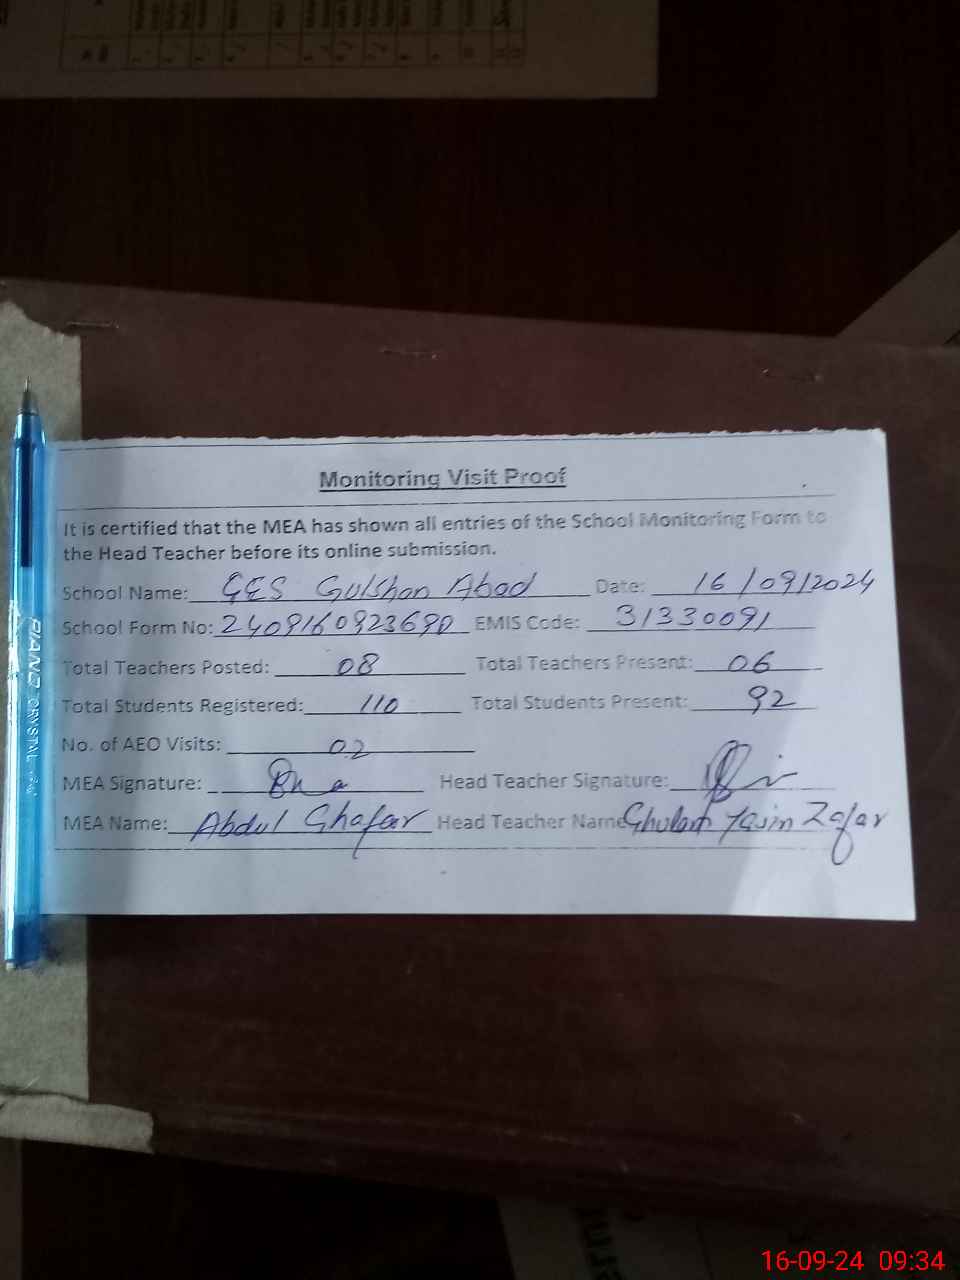 Monitoring Visit Proof
It is certified that the MEA has shown all entries of the School Monitoring Form to
the Head Teacher before its online submission.
School Name: GES Gulshan Abad Date: 16/09/2024
School Form No: 2409160923690 EMIS Code: 31330091
Total Teachers Posted: 08 Total Teachers Present: 06
Total Students Registered: 110 Total Students Present: 92
No. of AEO Visits: 02
MEA Signature: Head Teacher Signature:
MEA Name: Abdul Ghafar Head Teacher Name Ghulam Yasin Zafar
PIANO CRYSTAL
16-09-24 09:34